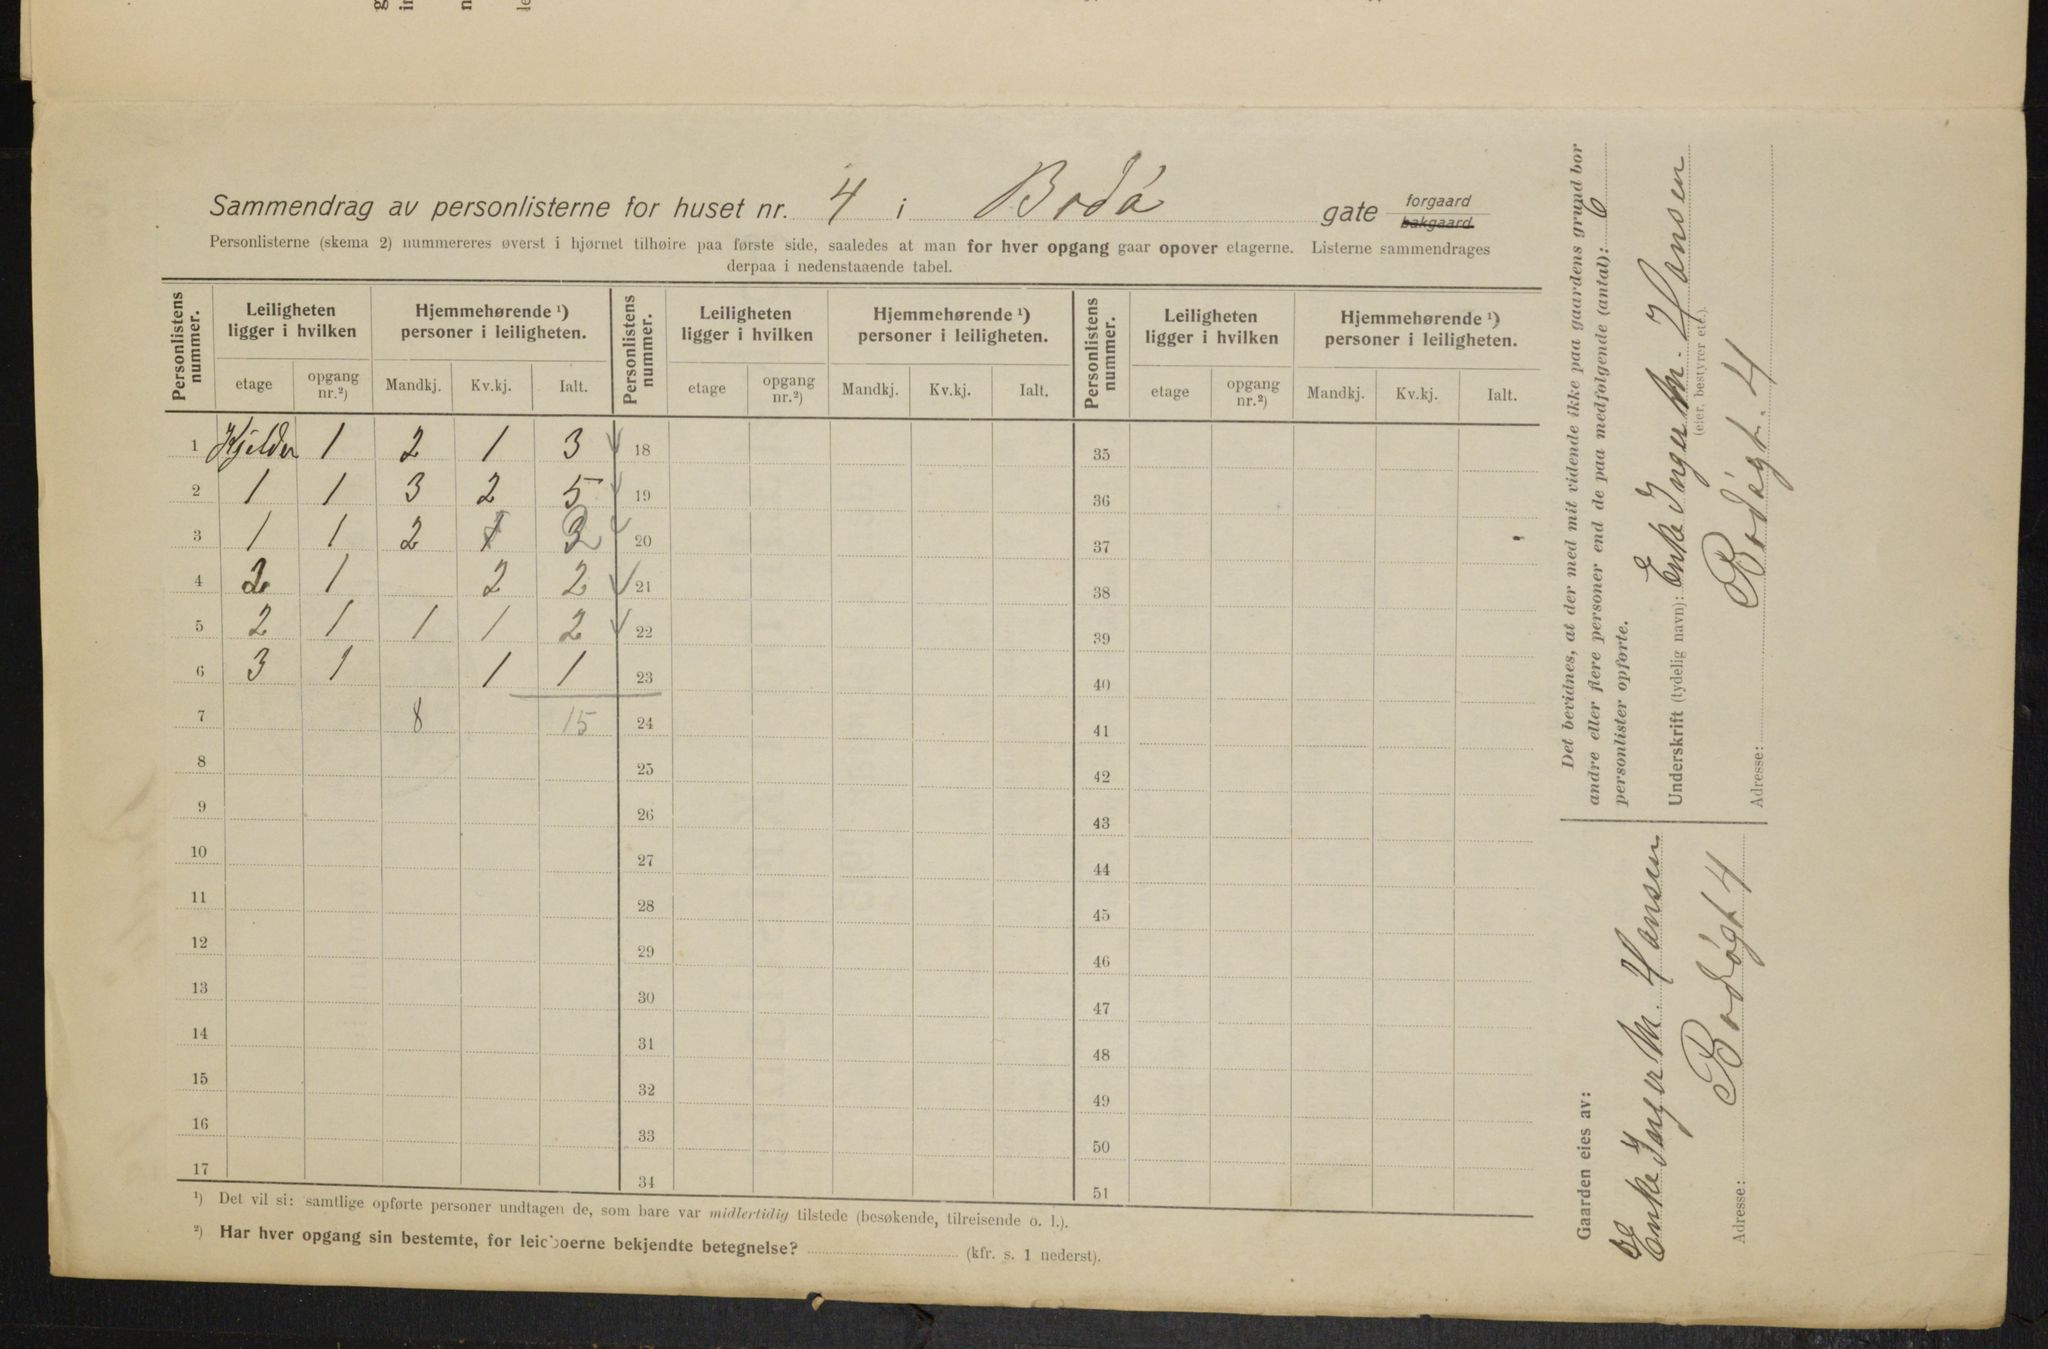 Sammendrag av personlisterne for huset nr. 4 i Bodø gate forgaard bakgaard.
Personlisterne (skema 2) nummereres øverst i hjørnet tilhøire paa første side, saaledes at man for hver opgang gaar opover etagerne. Listerne sammendrages
derpaa i nedenstaaende tabel.
Personlistens nummer. Leiligheten ligger i hvilken Hjemmehørende ¹) personer i leiligheten. Personlistens nummer. Leiligheten ligger i hvilken Hjemmehørende ¹) personer i leiligheten. Personlistens nummer. Leiligheten ligger i hvilken Hjemmehørende ¹) personer i leiligheten.
etage opgang nr.²) Mandkj. Kv.kj. Ialt. etage opgang nr.²) Mandkj. Kv.kj. Ialt. etage opgang nr.²) Mandkj. Kv.kj. Ialt.
1 Kjelder 1 2 1 3 18 35
2 1 1 3 2 5 19 36
3 1 1 2 1 2 20 37
4 2 1 2 2 21 38
5 2 1 1 1 2 22 39
6 3 1 1 1 23 40
7 8 15 24 41
8 25 42
9 26 43
10 27 44
11 28 45
12 29 46
13 30 47
14 31 48
15 32 49
16 33 50
17 34 51
¹) Det vil si: samtlige opførte personer undtagen de, som bare var midlertidig tilstede (besøkende, tilreisende o. l.).
²) Har hver opgang sin bestemte, for leieboerne bekjendte betegnelse? (kfr. s. 1 nederst).
Det bevidnes, at der med mit vidende ikke paa gaardens grund bor
andre eller flere personer end de paa medfølgende (antal): 6
personlister opførte.
Underskrift (tydelig navn): Enke Inger M. Hansen
(eier, bestyrer etc.).
Bodøgt. 4
Adresse:
Gaarden eies av:
Enke Inger M. Hansen
Bodøgt 4
Adresse: